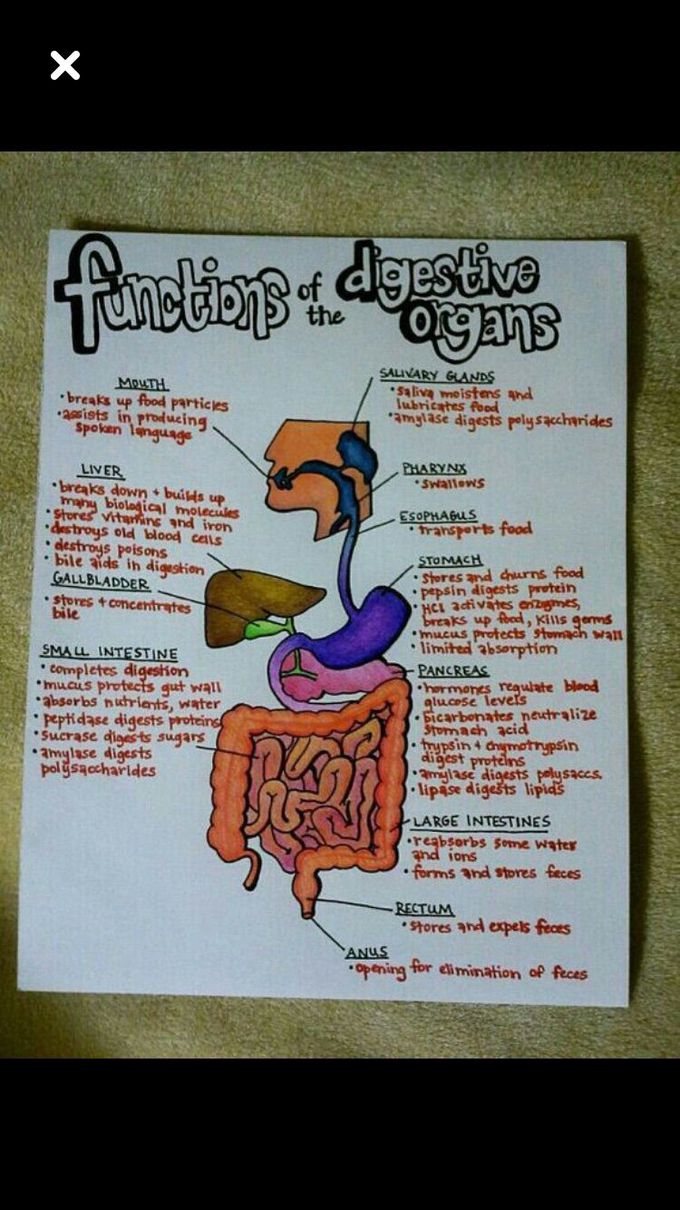 functions of the digestive organs
MOUTH
• breaks up food particles
• assists in producing
spoken language
LIVER
• breaks down + builds up
many biological molecules
• stores vitamins and iron
• destroys old blood cells
• destroys poisons
• bile aids in digestion
GALLBLADDER
• stores + concentrates
bile
SMALL INTESTINE
• completes digestion
• mucus protects gut wall
• absorbs nutrients, water
• peptidase digests proteins
• sucrase digests sugars
• amylase digests
polysaccharides
SALIVARY GLANDS
• saliva moistens and
lubricates food
• amylase digests polysaccharides
PHARYNX
• swallows
ESOPHAGUS
• transports food
STOMACH
• stores and churns food
• pepsin digests protein
• HCl activates enzymes,
breaks up food, kills germs
• mucus protects stomach wall
• limited absorption
PANCREAS
• hormones regulate blood
glucose levels
• bicarbonates neutralize
stomach acid
• trypsin + chymotrypsin
digest proteins
• amylase digests polysaccs.
• lipase digests lipids
LARGE INTESTINES
• reabsorbs some water
and ions
• forms and stores feces
RECTUM
• stores and expels feces
ANUS
• opening for elimination of feces